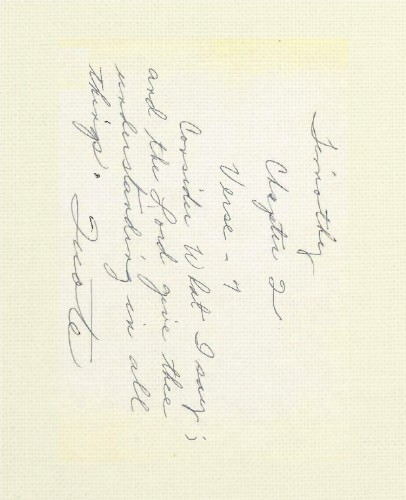 Timothy
Chapter 2
Verse - 7
Consider What I say;
and the Lord give thee
understanding in all
things. " Quote